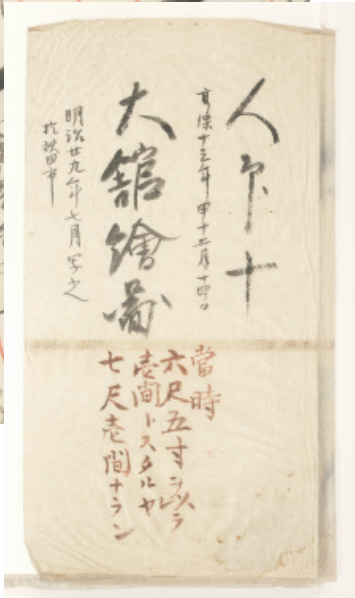 人印十
享保十三年甲十二月十四日
大館繪圖
明治廿九年七月写之
於秋田市
當時
六尺五寸ヲ以テ
壱間トスタルヤ
七尺壱間ナラン